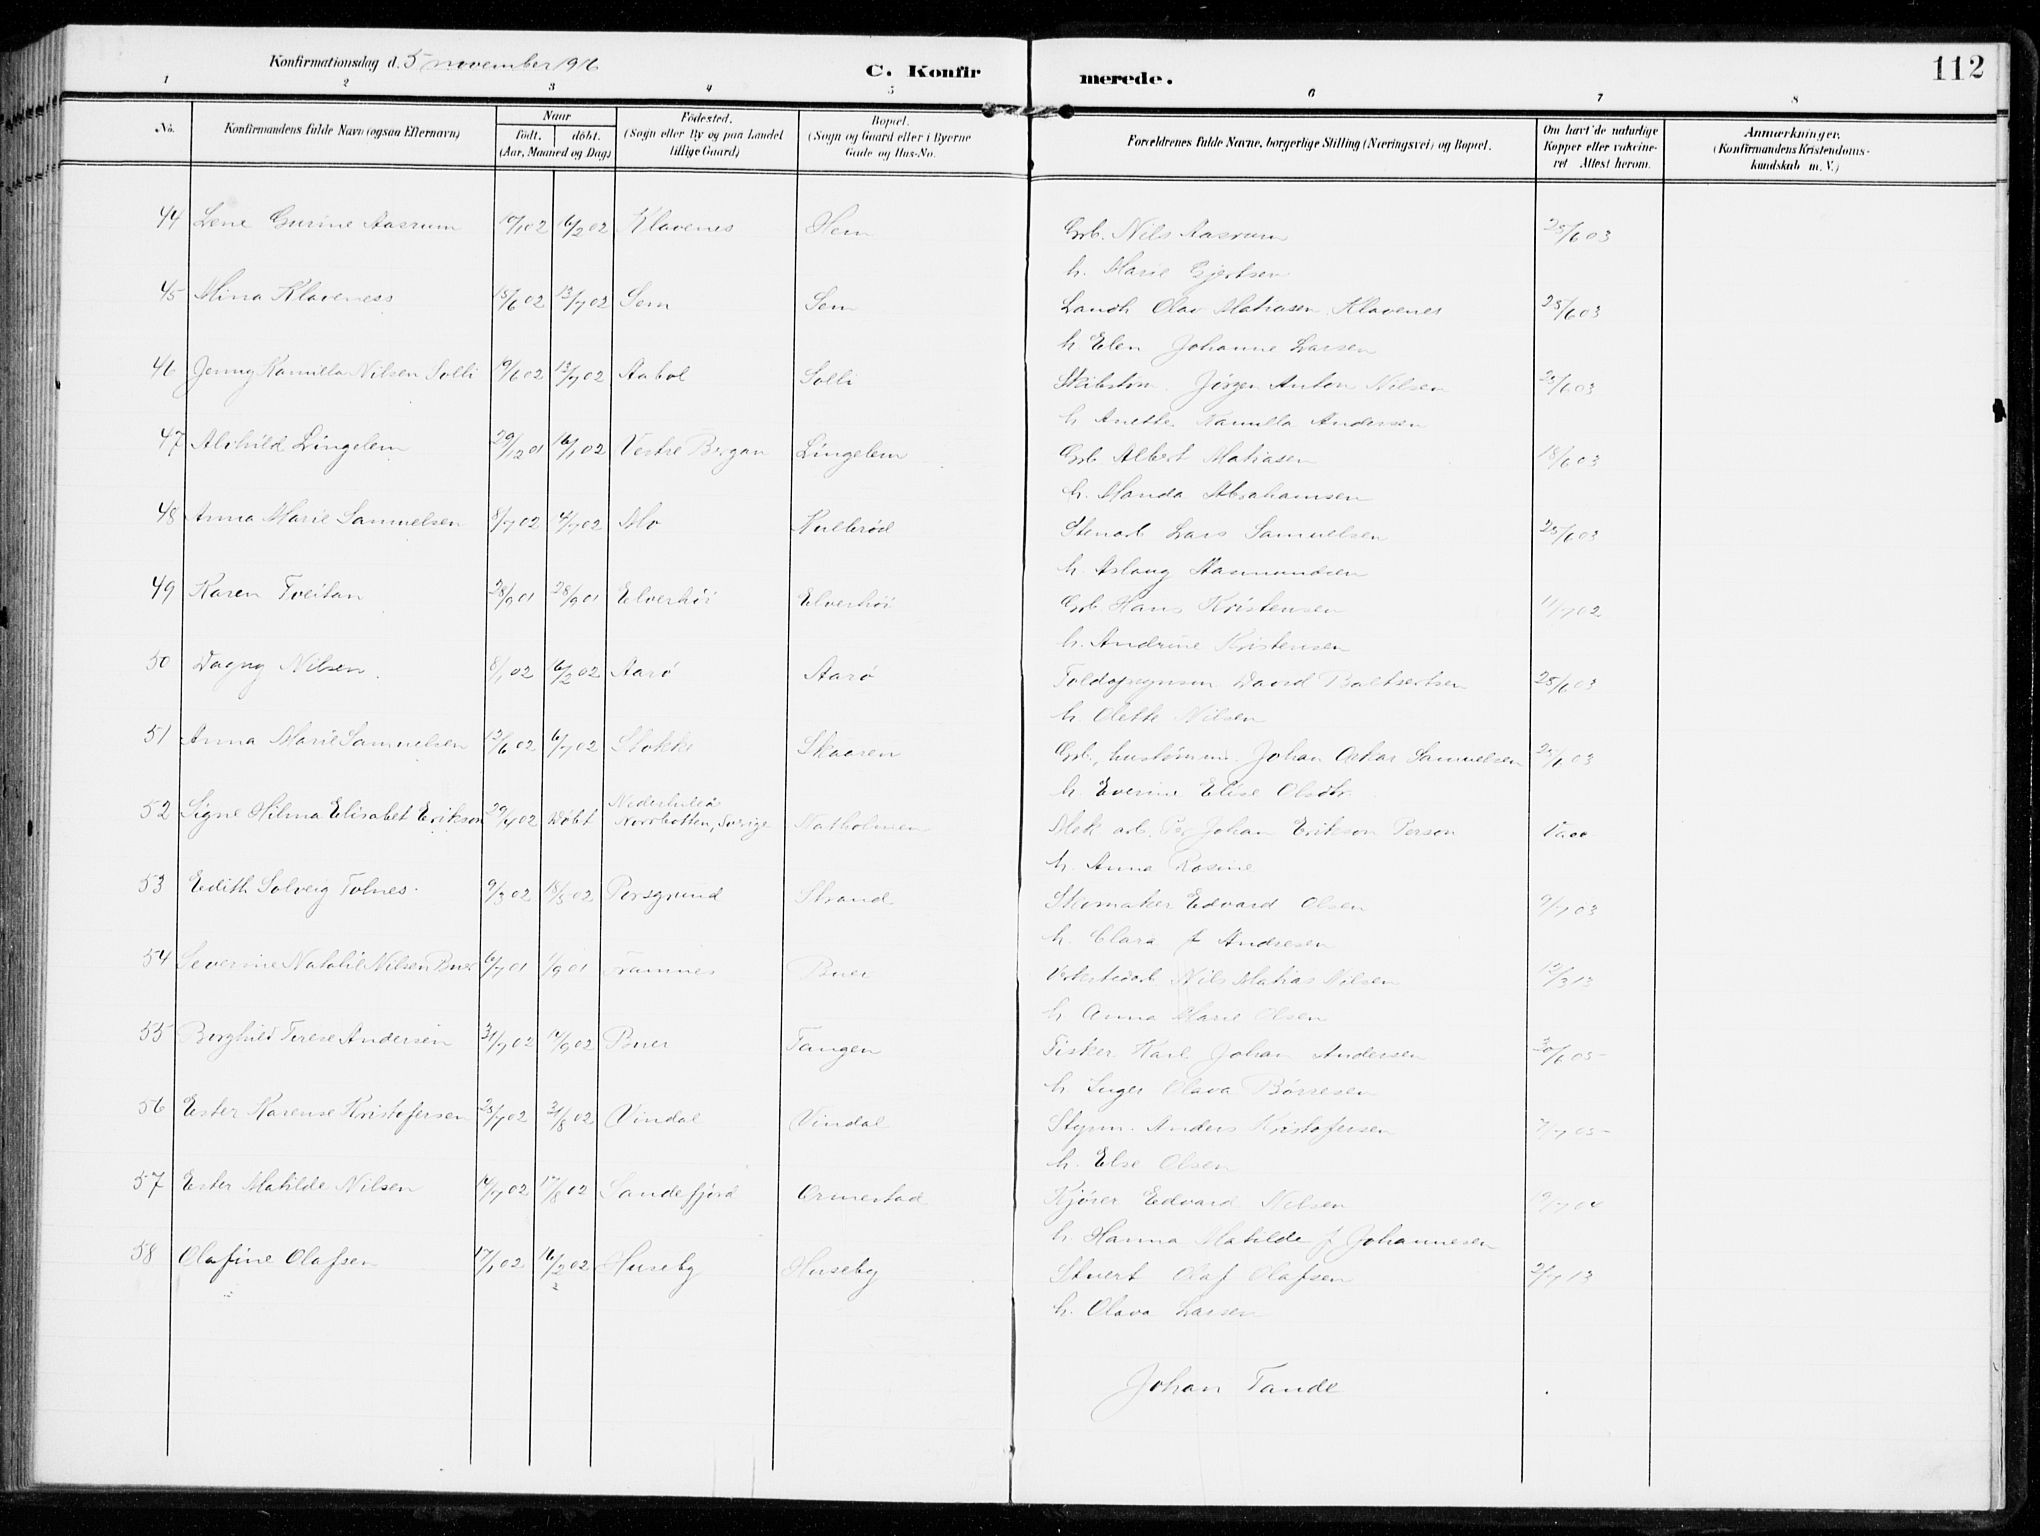 Konfirmationsdag d. 5 november 1916
C. Konfirmerede.
112
1 2 3 4 5 6 7 8
No. | Konfirmandens fulde Navn (ogsaa Efternavn) | Naar født. døbt. (Aar, Maaned og Dag) | Fødested. (Sogn eller By og paa Landet tillige Gaard) | Bopæl. (Sogn og Gaard eller i Byerne Gade og Hus-No. | Forældrenes fulde Navne, borgerlige Stilling (Næringsvei) og Bopæl. | Om havt de naturlige Kopper eller vakcineret Attest herom. | Anmærkninger. (Konfirmandens Kristendomskundskab m. V.)
44 Lene Gurine Aasrum 17/1 02 16/2 02 Klavenes Hem Grb. Nils Aasrum 25/6 03
h. Marie Gjertsen
45 Mina Klaveness 15/6 02 13/7 02 Sem Sem Landh Olav Matiasen Klavenes 25/6 03
h Elen Johanne Larsen
46 Jenny Kamilla Nilsen Solli 19/6 02 13/7 02 Aabol Solli Skibstøm. Jörgen Anton Nilsen 25/6 03
h Anette Kamilla Andersen
47 Alvhild Lingelem 29/12 01 16/1 02 Vestre Bergan Lingelem Grb Albert Matiasen 18/6 03
h. Manda Abrahamsen
48 Anna Marie Samuelsen 8/7 02 4/7 02 Mo Hullerød Stenarb Lars Samuelsen 25/6 03
h. Aslaug Aasmundsen
49 Karen Tveitan 28/9 01 28/9 01 Elverhöi Elverhöi Grb Hans Kristensen 11/7 02
h. Andrine Kristensen
50 Dagny Nilsen. 8/1 02 16/2 02 Aarö Aarö David Baltsertsen 25/6 03
h. Olette Nilsen
51 Anna Marie Samuelsen 12/6 02 6/7 02 Stokke Skaaren Grb., hustømm. Johan Oskar Samuelsen 25/6 03
h. Everine Elise Olsdtr.
52 Signe Hilma Elisabet Erikson 29/4 02 Døbt Nederluleå Norrbotten, Sverige Natholmen Mek arb. Per Johan Erikson Person
h. Anna Rosine
53 Edith Solveig Tolnes. 9/3 02 18/5 02 Porsgrund Strand Skomaker Edvard Olsen 9/7 03
h. Clara f Andresen
54 Severine Natalie Nilsen Buer 6/7 01 1/9 01 Framnes Buer Verkstedarb Nils Matias Nilsen 12/3 13
h Anna Marie Olsen
55 Borghild Terese Andersen 31/7 02 14/9 02 Buer Tangen Fisker Karl Johan Andersen 30/6 05
h Inger Olava Børresen
56 Ester Karense Kristofersen 23/7 02 31/8 02 Vindal Vindal Styrm. Anders Kristofersen 7/7 05
h. Else Olsen
57 Ester Matilde Nilsen 14/7 02 17/8 02 Sandefjord Ormestad Kjører Edvard Nilsen 19/7 04
h Hanna Matilde f Johannesen
58 Olafine Olafsen 17/1 02 16/2 02 Huseby Huseby Stuert Olaf Olafsen 2/7 13
h. Olava Larsen
Johan Tande